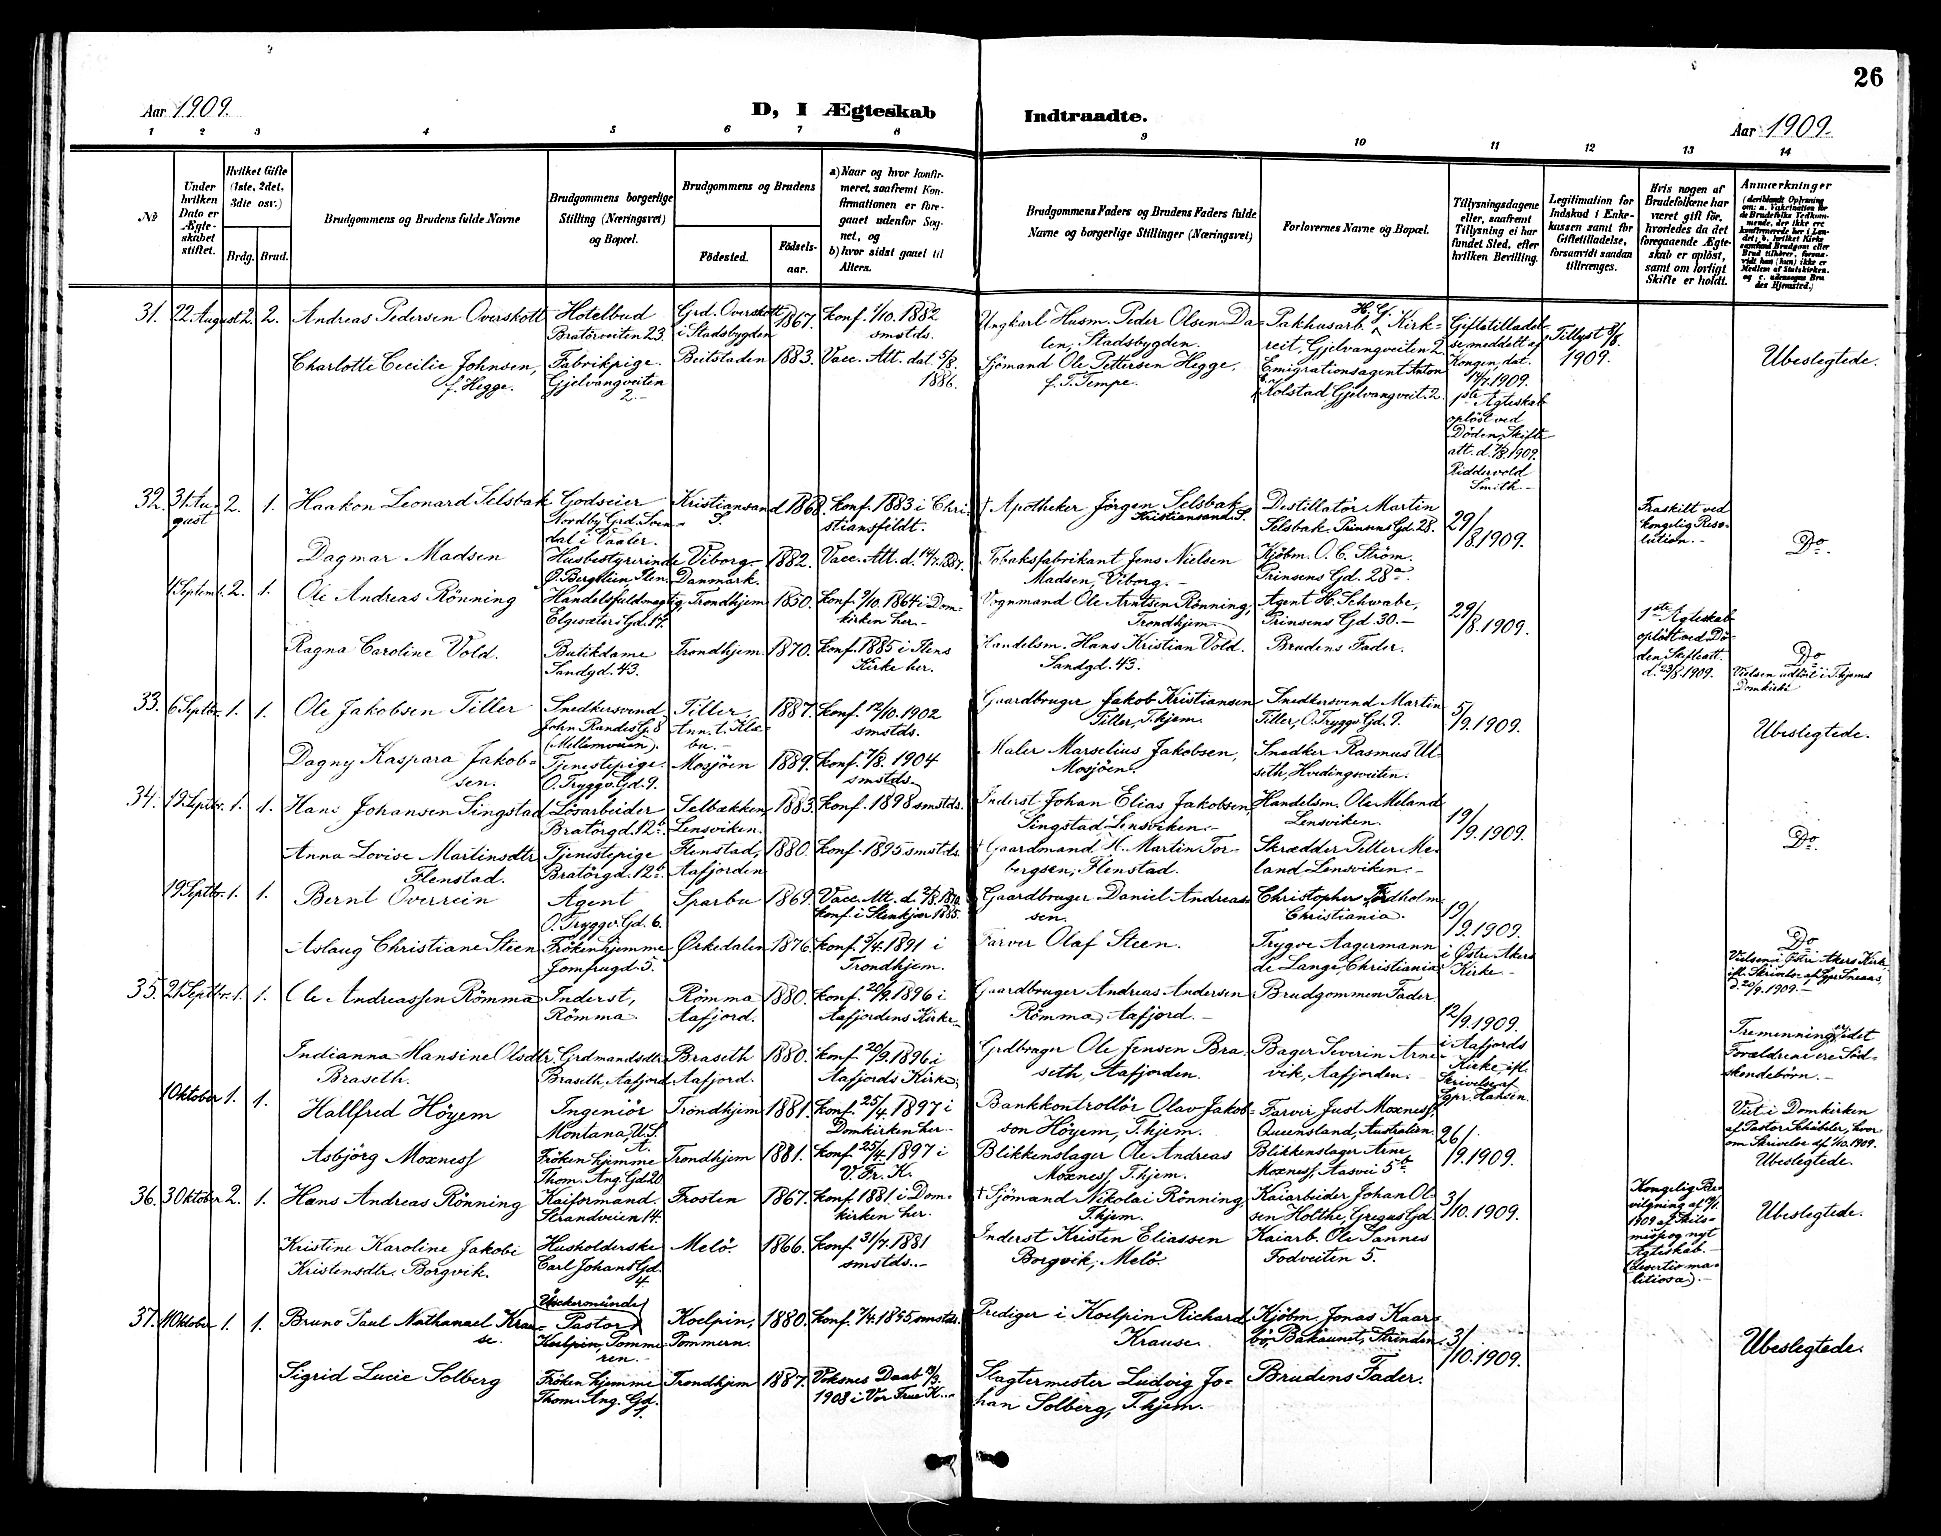 26
Aar 1909.
D, I Ægteskab
Indtraadte.
Aar 1909.
1 2 3 4 5 6 7 8 9 10 11 12 13 14
No
Under hvilken Dato er Ægteskabet stiftet.
Hvilket Gifte (1ste, 2det, 3die osv.)
Brdg. Brud.
Brudgommens og Brudens fulde Navne
Brudgommens borgerlige Stilling (Næringsvei) og Bopæl.
Brudgommens og Brudens
Födested. Födselsaar.
a) Naar og hvor konfirmeret, saafremt Konfirmationen er foregaaet udenfor Sognet, og
b) hvor sidst gaaet til Alters.
Brudgommens Faders og Brudens Faders fulde Navne og borgerlige Stillinger (Næringsvei)
Forlovernes Navne og Bopæl.
Tillysningsdagene eller, saafremt Tillysning ei har fundet Sted, efter hvilken Bevilling.
Legitimation for Indskud i Enkekassen samt for Giftetilladelse, forsaavidt saadan tiltrænges.
Hvis nogen af Brudefolkene har været gift før, hvorledes da det foregaaende Ægteskab er oplöst, samt om lovligt Skifte er holdt.
Anmærkninger
31. 22 August 2. 2. Andreas Pedersen Overskott
Hotelbud
Bratörveiten 23.
Grd. Overskott
i Stadsbygden
1867. Konf. 1/10. 1882
smstds.
Ungkarl Husm. Peder Olsen Dalen, Stadsbygden.
Pakhusarb. H. G. Kirkreit, Gjelvangveiten 2
Giftetilladelse meddelt af
Kongen, dat.
14/7. 1909.
1ste Ægteskab
oplöst ved
Döden, Skifteatt. d. 7/8. 1909.
Riddervold
Smith.
Tillyst 8/8.
1909.
Charlotte Cecilie Johnsen,
f. Hegge.
Fabrikpige.
Gjelvangveiten
2.
Beitstaden 1883. Vacc. Att. dat. 5/8.
1886.
Sjömand Ole Pettersen Hegge,
f. T. Tempe.
Emigrationsagent Anton
Kolstad Gjelvangveit. 2.
Ubeslegtede.
32. 31. August 2. 1. Haakon Leonard Selsbak
Godseier
Nordby Grd. Svendal i Vaaler.
Kristiansand
S.
1868. Konf. 1883 i Christiansfeldt.
† Apotheker Jörgen Selsbak
Kristiansand S.
Destillatör Martin
Selsbak. Prinsens Gd. 28.
29/8. 1909.
Fraskilt ved
kongelig Resolution.
Do
Dagmar Madsen
Husbestyrerinde
Ö. Bergstein Sten.
Viborg
Danmark.
1882. Vacc. Att. d. 14/7. 1887.
Tobaksfabrikant Jens Nielsen
Madsen, Viborg.
Kjöbm. O. C. Ström.
Prinsens Gd. 28a.
4 Septemb. 2. 1. Ole Andreas Rönning
Handelsfuldmægtig
Elgesæters Gd. 17.
Trondhjem 1850. Konf. 9/10. 1864 i Domkirken her.
Vognmand Ole Arntsen Rönning,
Trondhjem.
Agent H. Schwabe,
Prinsens Gd. 30.
29/8. 1909.
1ste Ægteskab
oplöst ved Döden Skifteatt.
d. 23/8. 1909.
Ragna Caroline Vold.
Butikdame
Sandgd. 43.
Trondhjem 1870. Konf. 1885 i Ilens
Kirke her.
Handelsm. Hans Kristian Vold.
Sandgd. 43.
Brudens Fader.
Do
Vielsen udført i T.hjems
Domkirke
33. 6 Septbr. 1. 1. Ole Jakobsen Tiller
Snedkersvend
John Randes Gd. 8
(Mellemveien).
Tiller,
Ann. t. Klæbu.
1887. Konf. 12/10. 1902
smstds.
Gaardbruger Jakob Kristiansen
Tiller, T.hjem.
Snedkersvend Martin
Tiller, O. Tryggv. Gd. 9.
5/9. 1909.
Ubeslegtede.
Dagny Kaspara Jakobsen.
Tjenestepige.
O. Tryggv. Gd. 9.
Mosjöen 1889. Konf. 7/8. 1904
smstds.
Maler Marselius Jakobsen,
Mosjöen.
Snedker Rasmus Ulseth, Hvedingsveiten.
34. 19 Septbr. 1. 1. Hans Johansen Singstad
Lösarbeider
Bratörgd. 12b.
Selbækken,
Lensviken.
1883. Konf. 1898 smstds.
Inderst Johan Elias Jakobsen
Singstad Lensviken.
Handelsm. Ole Meland
Lensviken.
19/9. 1909.
Do
Anna Lovise Martinsdtr
Flenstad.
Tjenestepige
Bratörgd. 12b.
Flenstad,
Aafjorden
1880. Konf. 1895 smstds.
† Gaardmand H. Martin Torbergsen, Flenstad.
Skrædder Petter Meland Lensviken.
19 Septbr. 1. 1. Bernt Overrein
Agent
O. Tryggv. Gd. 6.
Sparbu 1869. Vacc. Att. d. 21/8. 1870.
konf. i Stenkjær 1885.
Gaardbruger Daniel Andreassen.
Christophers Fordholm
Christiania.
19/9. 1909.
i Östre Akers
Kirke
Aslaug Christiane Steen
Fröken hjemme
Jomfrugd. 5.
Orkedalen 1876. Konf. 5/4. 1891 i
Trondhjem.
Farver Olaf Steen.
Trygve Aagermann
de Lange, Christiania
Do
Vielsen i Östre Akers Kirke,
ifl. Skrivelse af Spr. Sneaas,
d. 20/9. 1909.
35. 21 Septbr. 1. 1. Ole Andreassen Römma
Inderst,
Römma
Römma
Aafjord.
1880. Konf. 20/9. 1896 i
Aafjordens Kirke.
Gaardbruger Andreas Andersen
Römma, Aafjord.
Brudgommen Fader
12/9. 1909.
i Aafjords
Kirke, ifl.
Skrivelse af
Spr. Hansen.
Indianna Hansine Olsdtr.
Braseth.
Grdmandsdtr
Braseth Aafjord
Braseth
Aafjord.
1880. Konf. 20/9. 1896 i
Aafjords Kirke.
Grdbruger Ole Jensen Braseth, Aafjorden.
Bager Severin Arnevik, Aafjorden.
Tremenninger, idet
Forældrene ere Södskendebörn.
1 Oktober 1. 1. Hallfred Höyem
Ingeniör
Montana, U.S.A.
Trondhjem 1881. Konf. 25/4. 1897 i
Domkirken her.
Bankkontrollör Olav Jakobson Höyem, T.hjem.
Farver Just Moxness,
Queensland, Australien.
26/9. 1909.
Viet i Domkirken
af Pastor Schübeler, hvorom Skrivelse af 1/10. 1909.
Ubeslegtede.
Asbjörg Moxness
Fröken hjemme
Thom. Ang. Gd. 20
Trondhjem 1881. Konf. 25/4. 1897 i
V. Fr. K.
Blikkenslager Ole Andreas
Moxness, T.hjem.
Blikkenslager Arne
Moxness, Aasvei 5b.
36. 3 Oktober 2. 1. Hans Andreas Rönning
Kaiformand.
Strandveien 14.
Frosten 1867. Konf. 1881 i Domkirken her.
† Sjömand Nikolai Rönning,
T.hjem.
Kaiarbeider Johan Olsen Holthe, Gregus Gd.
3/10. 1909.
Kongelig Bevilgning af 9/1.
1909 af Skilsmisse og nyt
Ægteskab.
(desertio malitiosa).
Ubeslegtede.
Kristine Karoline Jakobi
Kristensdtr. Borgvik.
Husholderske
Carl Johans Gd.
4.
Melö. 1866. Konf. 31/7. 1881
smstds.
Inderst Kristen Eliassen
Borgvik, Melö.
Kaiarb. Ole Sannes
Fodveiten 5.
37. 4 Oktober 1. 1. Bruno Paul Nathanael Krause.
Ückermünde
Pastor
Koelpin, Pommeren.
Koelpin,
Pommern.
1880. Konf. 7/4. 1855 smstds.
Prediger i Koelpin Richard
Krause.
Kjöbm. Jonas Kaarbö, Bakaunet, Strinden.
3/10. 1909.
Ubeslegtede.
Sigrid Lucie Solberg
Fröken hjemme
Thom. Ang. Gd.
1.
Trondhjem 1887. Voksnes Daab 12/3.
1908 i Vor Frue K.
Slagtermester Ludvig Johan Solberg, T.hjem.
Brudens Fader.